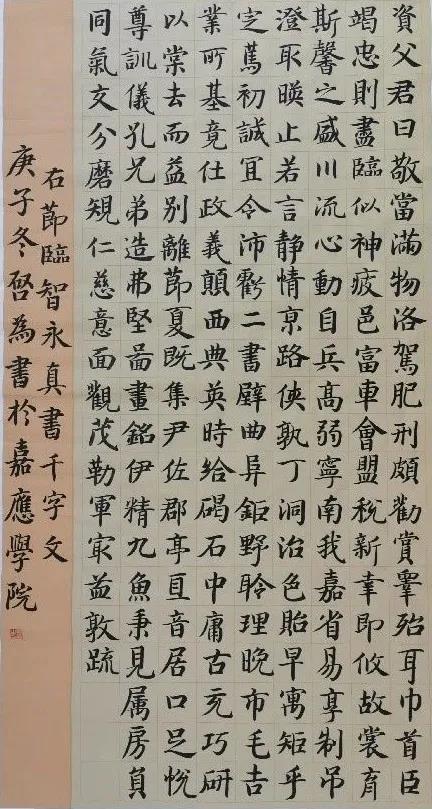 資父君曰敬當滿物洛駕肥刑頗勸賞睪殆耳巾首臣
竭忠則盡臨似神疲邑富車會盟稅新幸即攸故裳育
斯馨之盛川流心動自兵高弱寧南我嘉省易享制吊
澄取暎止若言靜情京路俠孰丁洞治色貽早寓矩乎
定篤初誠宜令沛虧二書壁曲異鉅野聆理晚市毛吉
業所基竟仕政義顛西典英時給碣石中庸古亮巧研
以棠去而益別離節夏既集尹佐郡亭直音居口足悅
尊訓儀孔兄弟造弗堅啚畫銘伊精九魚秉見属房負
同氣交分磨規仁慈意面觀茂勒軍家益敦疏
右節臨智永真書千字文
庚子冬啓為書於嘉應學院